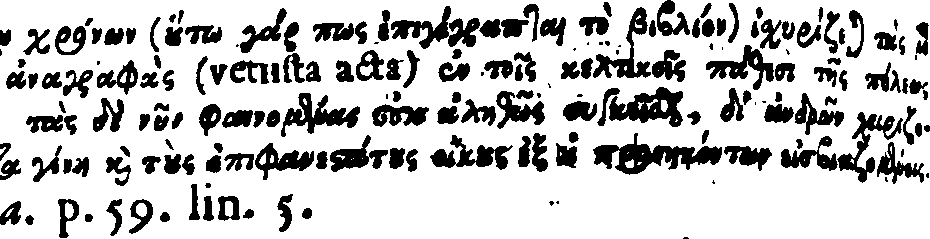 χρόνων (ὕτω γάρ πως ἐπιγέγραπται τὸ βιβλίον) ἰχυρίζε) τὰς μ̃
ἀναγραφὰς (vetusta acta) ἐν τοῖς κελτικοῖς πάθεσι τῆς πόλεως
τὰς δὲ νῦν φαινομένας οὐκ ἀληθῶς συγκεῖσθαι, δι' ἀνδρῶν χαριζο-
γένη κ̀ τὺς ἐπιφανεστάτυς οἴκυς ἐξ ὐ προσηκόντων εἰσβιαζομένοις.
a. p. 59. lin. 5.